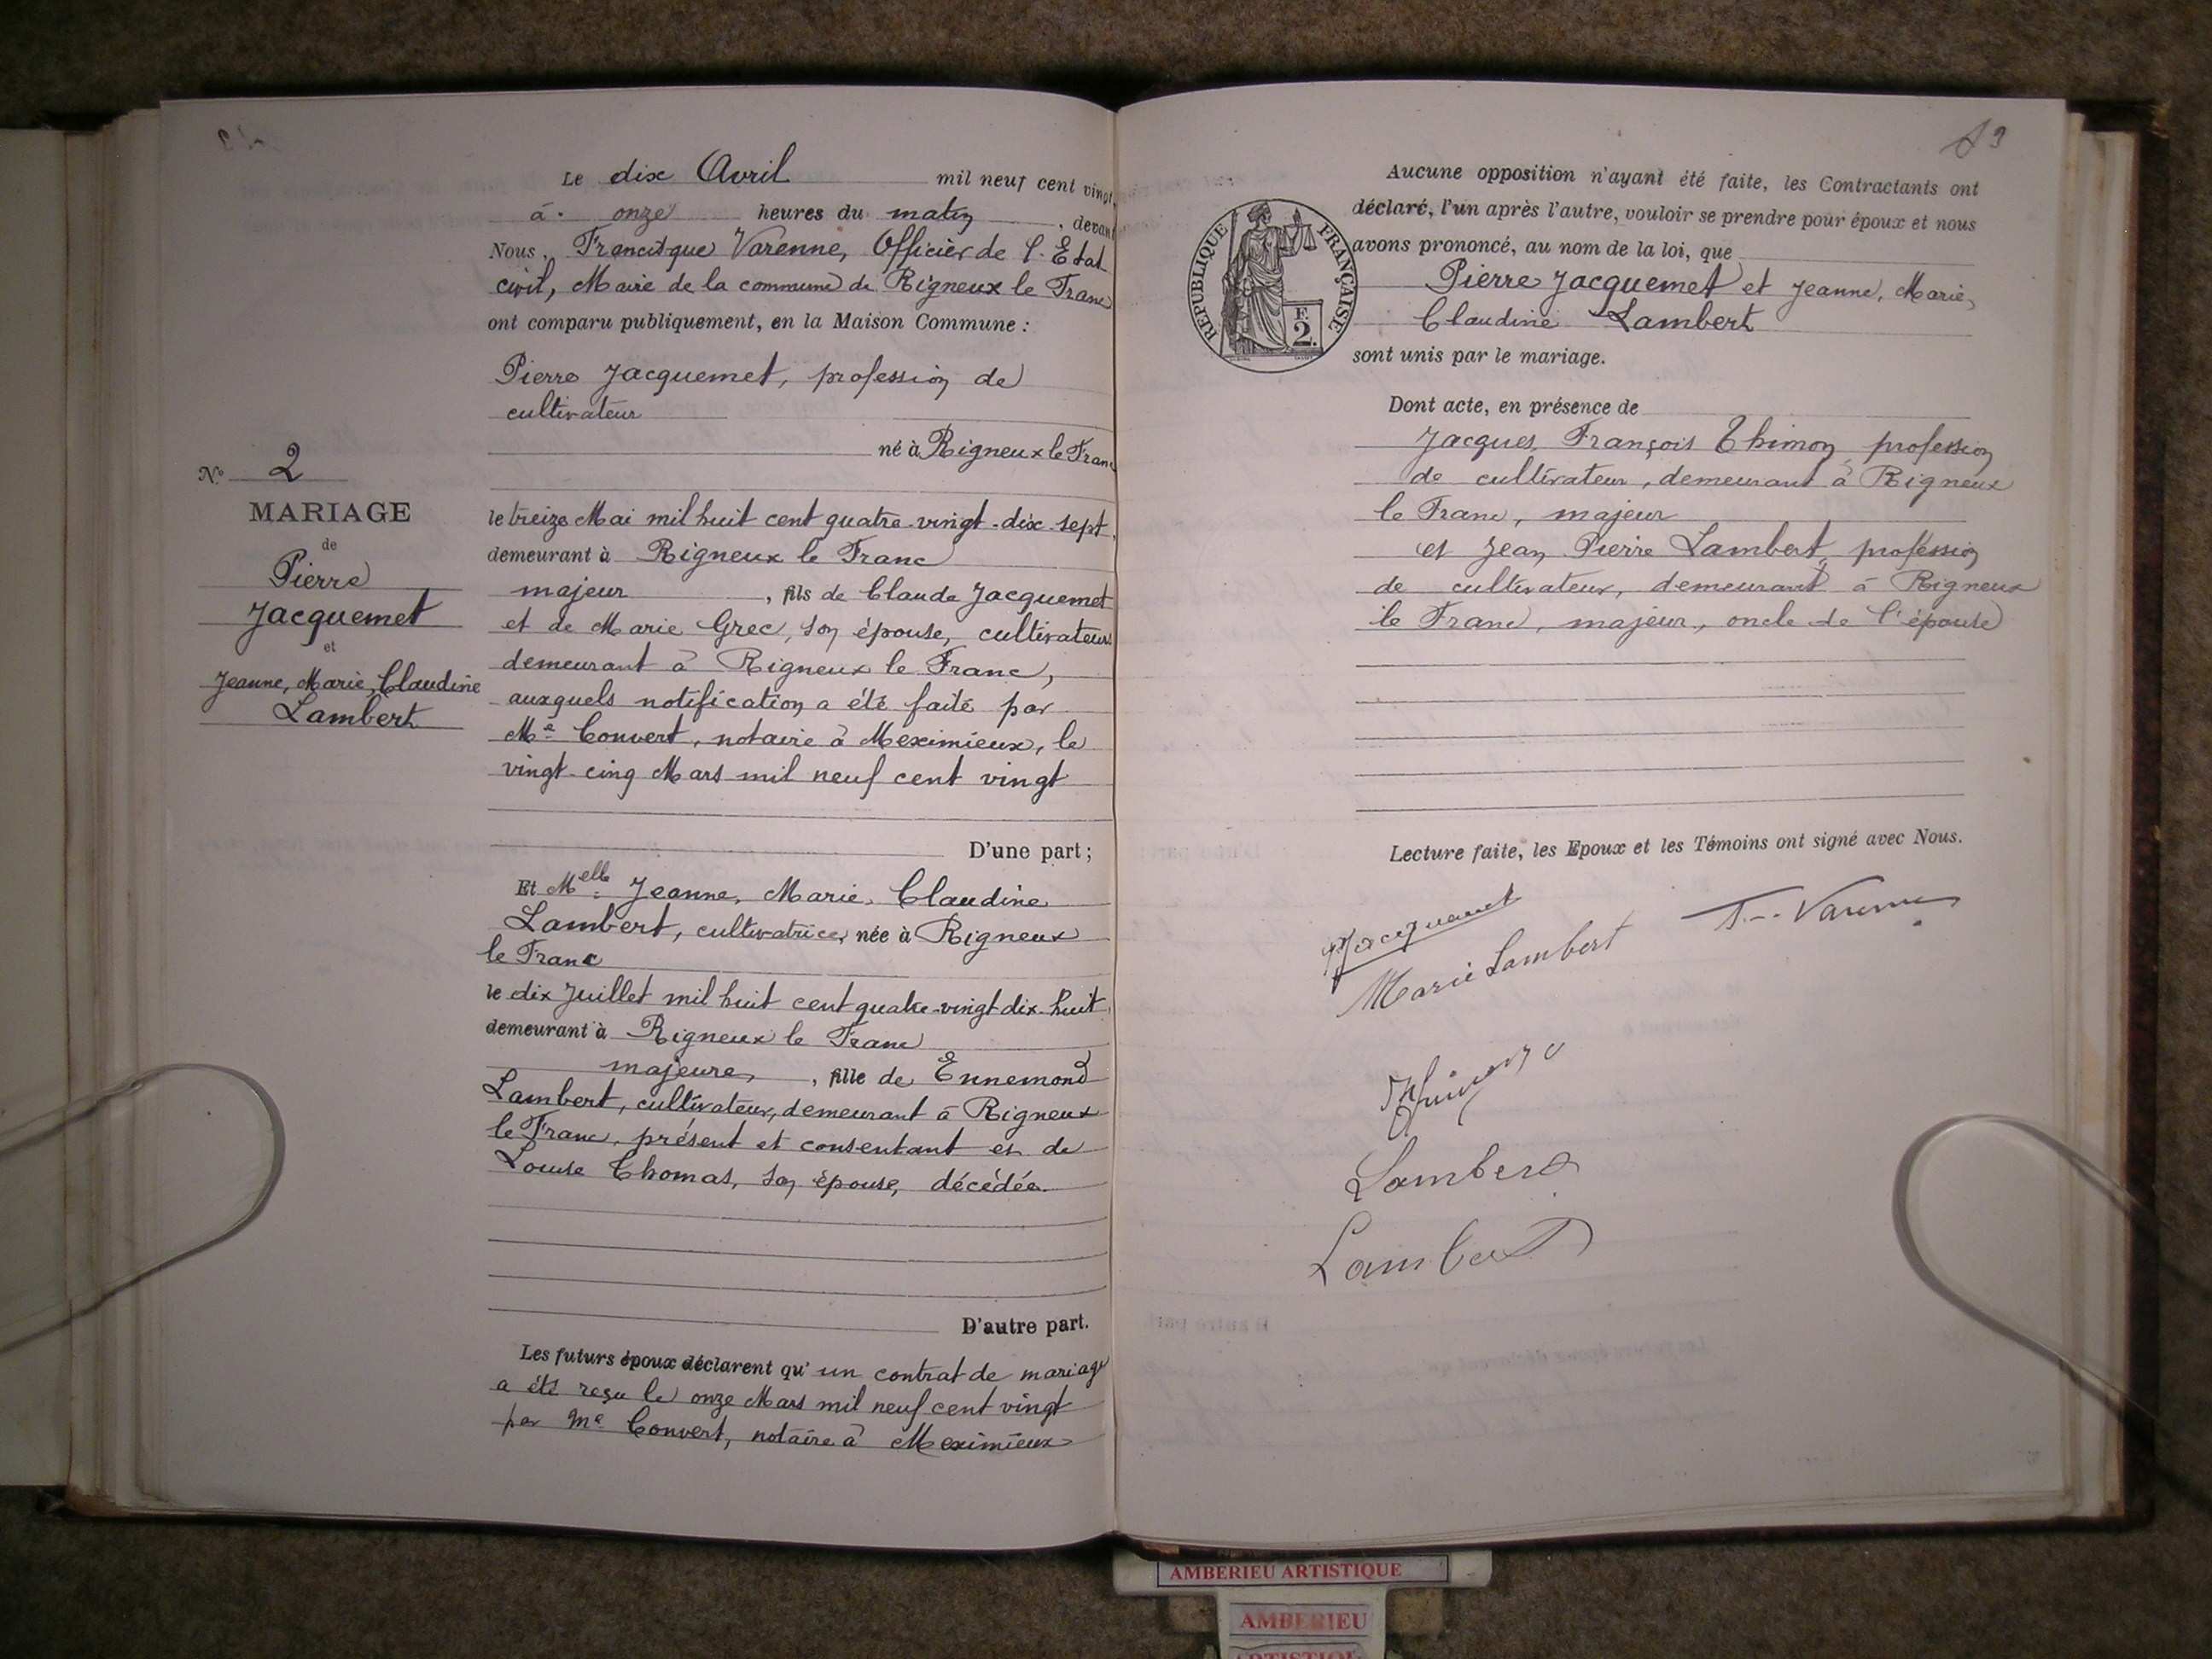 Le dix Avril mil neuf cent vingt,
à onze heures du matin, devant
Nous, Francisque Varenne, Officier de l'Etat
civil, Maire de la commune de Rigneux le Franc
ont comparu publiquement, en la Maison Commune :
Pierre Jacquemet, profession de
cultivateur
né à Rigneux le Franc
le treize Mai mil huit cent quatre-vingt-dix-sept,
demeurant à Rigneux le Franc
majeur, fils de Claude Jacquemet
et de Marie Grec, son épouse, cultivateurs
demeurant à Rigneux le Franc,
auxquels notification a été faite par
Me Convert, notaire à Meximieux, le
vingt-cinq Mars mil neuf cent vingt
D'une part ;
Et Melle Jeanne, Marie, Claudine
Lambert, cultivatrice, née à Rigneux
le Franc
le dix Juillet mil huit cent quatre-vingt dix-huit,
demeurant à Rigneux le Franc
majeure, fille de Ennemond
Lambert, cultivateur, demeurant à Rigneux
le Franc, présent et consentant et de
Louise Thomas, son épouse, décédée.
D'autre part.
Les futurs époux déclarent qu'un contrat de mariage
a été reçu le onze Mars mil neuf cent vingt
par Me Convert, notaire à Meximieux
No 2
MARIAGE
de
Pierre
Jacquemet
et
Jeanne, Marie, Claudine
Lambert
Aucune opposition n'ayant été faite, les Contractants ont
déclaré, l'un après l'autre, vouloir se prendre pour époux et nous
avons prononcé, au nom de la loi, que
Pierre Jacquemet et Jeanne, Marie,
Claudine Lambert
sont unis par le mariage.
Dont acte, en présence de
Jacques François Thimon, profession
de cultivateur, demeurant à Rigneux
le Franc, majeur
et Jean Pierre Lambert, profession
de cultivateur, demeurant à Rigneux
le Franc, majeur, oncle de l'épouse
Lecture faite, les Epoux et les Témoins ont signé avec Nous.
Jacquemet
Marie Lambert
F. Varenne
Lambert
Lambert
RÉPUBLIQUE FRANÇAISE
F.
2.
AMBERIEU ARTISTIQUE
AMBERIEU
ARTISTIQUE